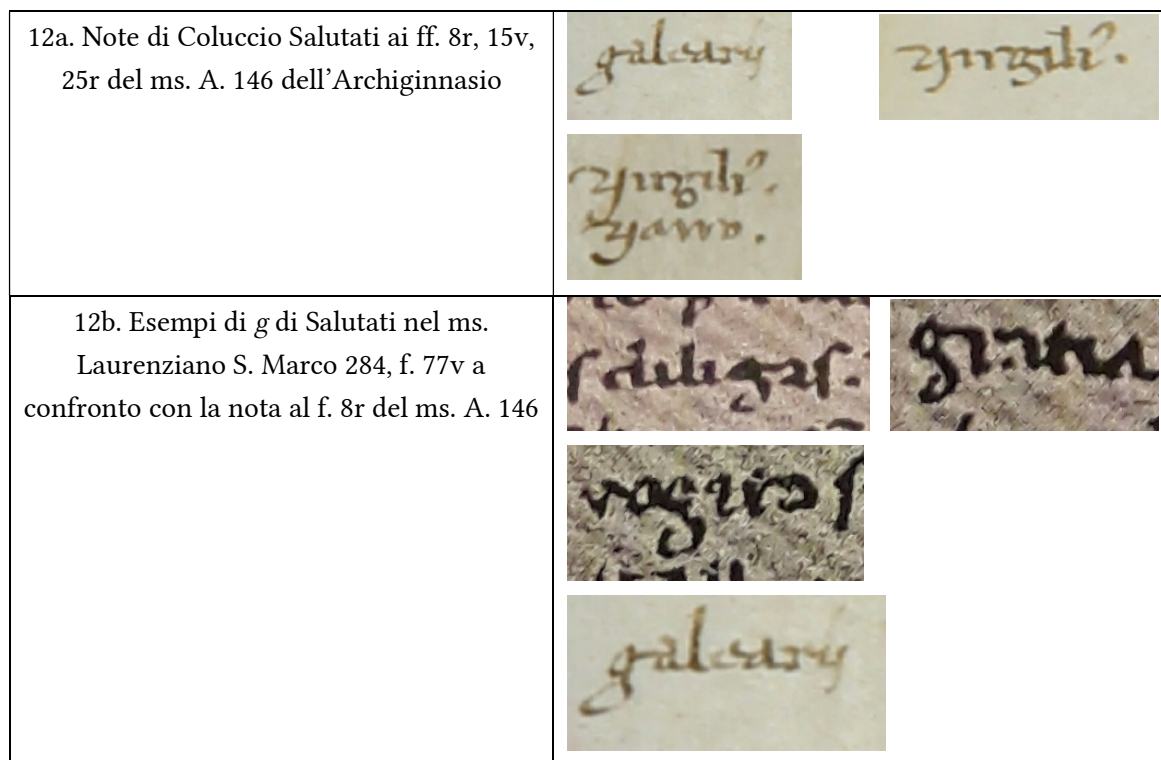 12a. Note di Coluccio Salutati ai ff. 8r, 15v,
25r del ms. A. 146 dell'Archiginnasio
galearij
virgiliꝰ.
virgiliꝰ.
varro.
12b. Esempi di g di Salutati nel ms.
Laurenziano S. Marco 284, f. 77v a
confronto con la nota al f. 8r del ms. A. 146
diligas.
galearij